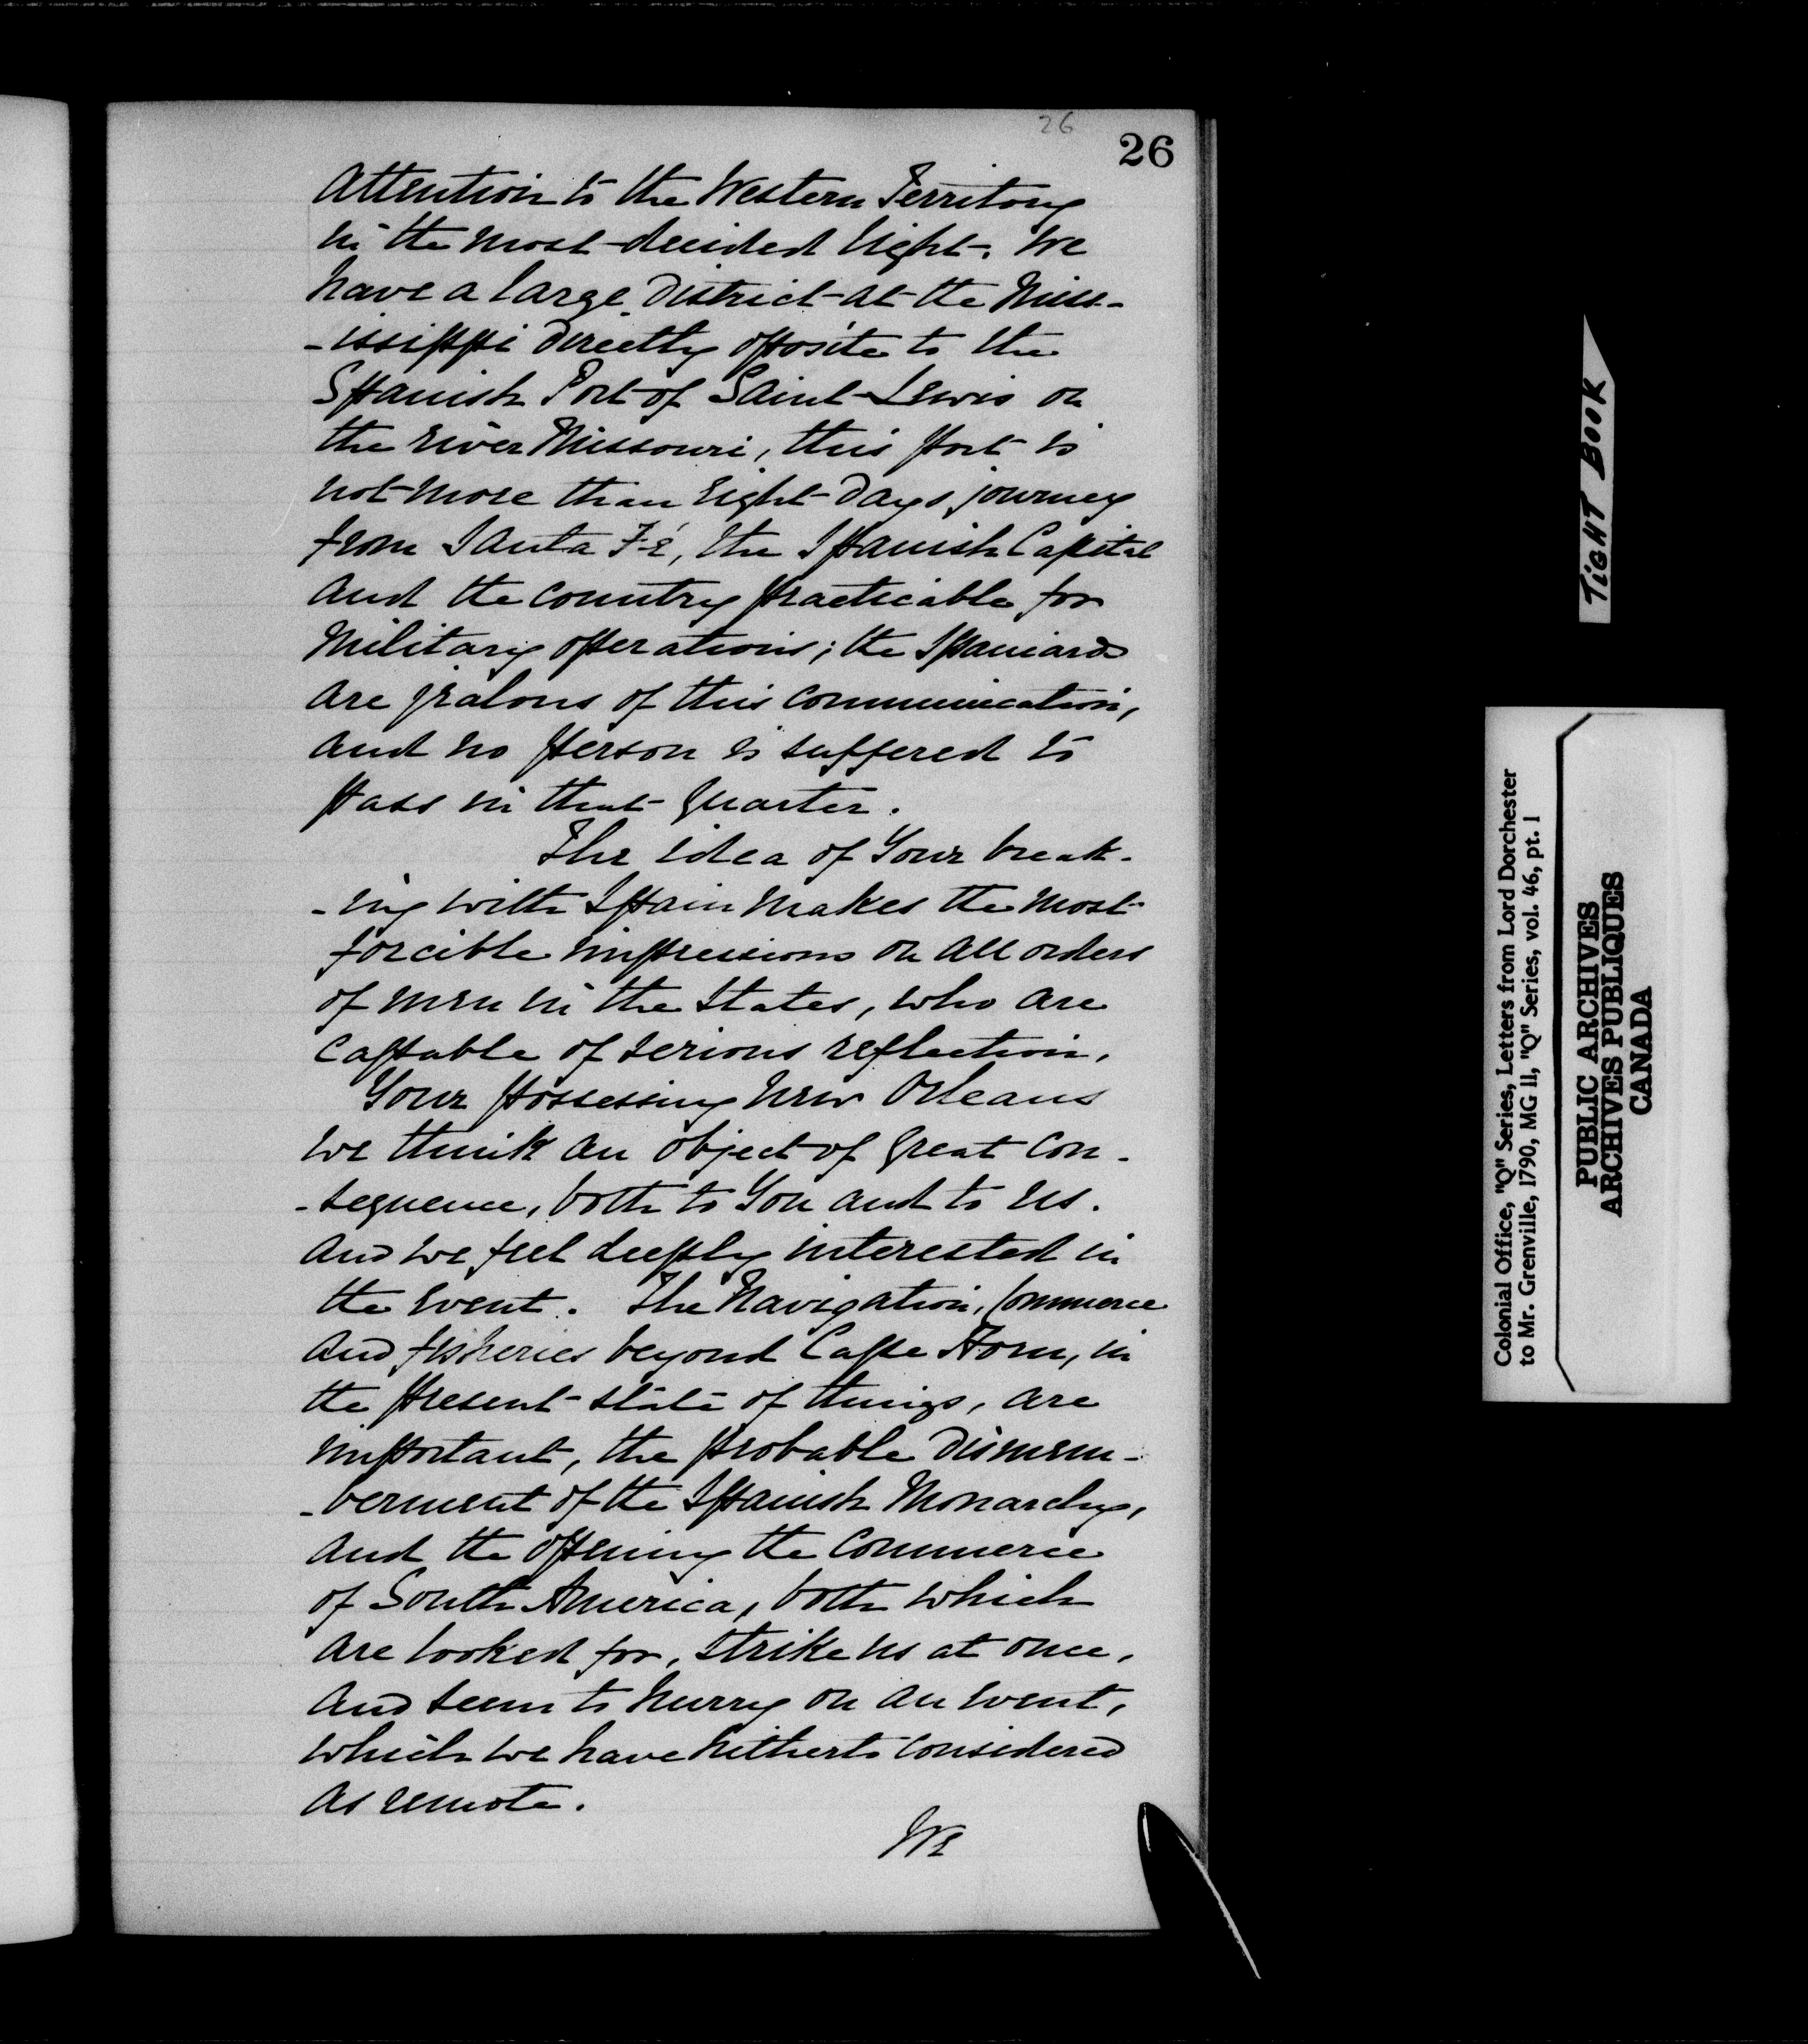 26
26
Attention to the Western Territory
in the most decided light. We
have a large District at the Miss-
-issippi directly opposite to the
Spanish Port of Saint Lewis on
the river Missouri, this port is
not more than eight Days journey
from Santa Fé, the Spanish Capital
and the country practicable for
Military operations; the Spaniards
are jealous of this communication,
and no person is suffered to
pass in that quarter.
The idea of Your break-
-ing with Spain makes the most
forcible impressions on all orders
of men in the States, who are
capable of serious reflection.
Your possessing New Orleans
we think an object of great con-
-sequence, both to You and to us.
And we feel deeply interested in
the event. The Navigation, Commerce
and fisheries beyond Cape Horn, in
the present state of things, are
important, the probable Dismem-
-berment of the Spanish Monarchy,
and the opening the Commerce
of South America, both which
are looked for, strike us at once,
and seem to hurry on an event,
which we have hitherto considered
as remote.
We
TIGHT BOOK
Colonial Office, "Q" Series, Letters from Lord Dorchester
to Mr. Grenville, 1790, MG 11, "Q" Series, vol. 46, pt. 1
PUBLIC ARCHIVES
ARCHIVES PUBLIQUES
CANADA